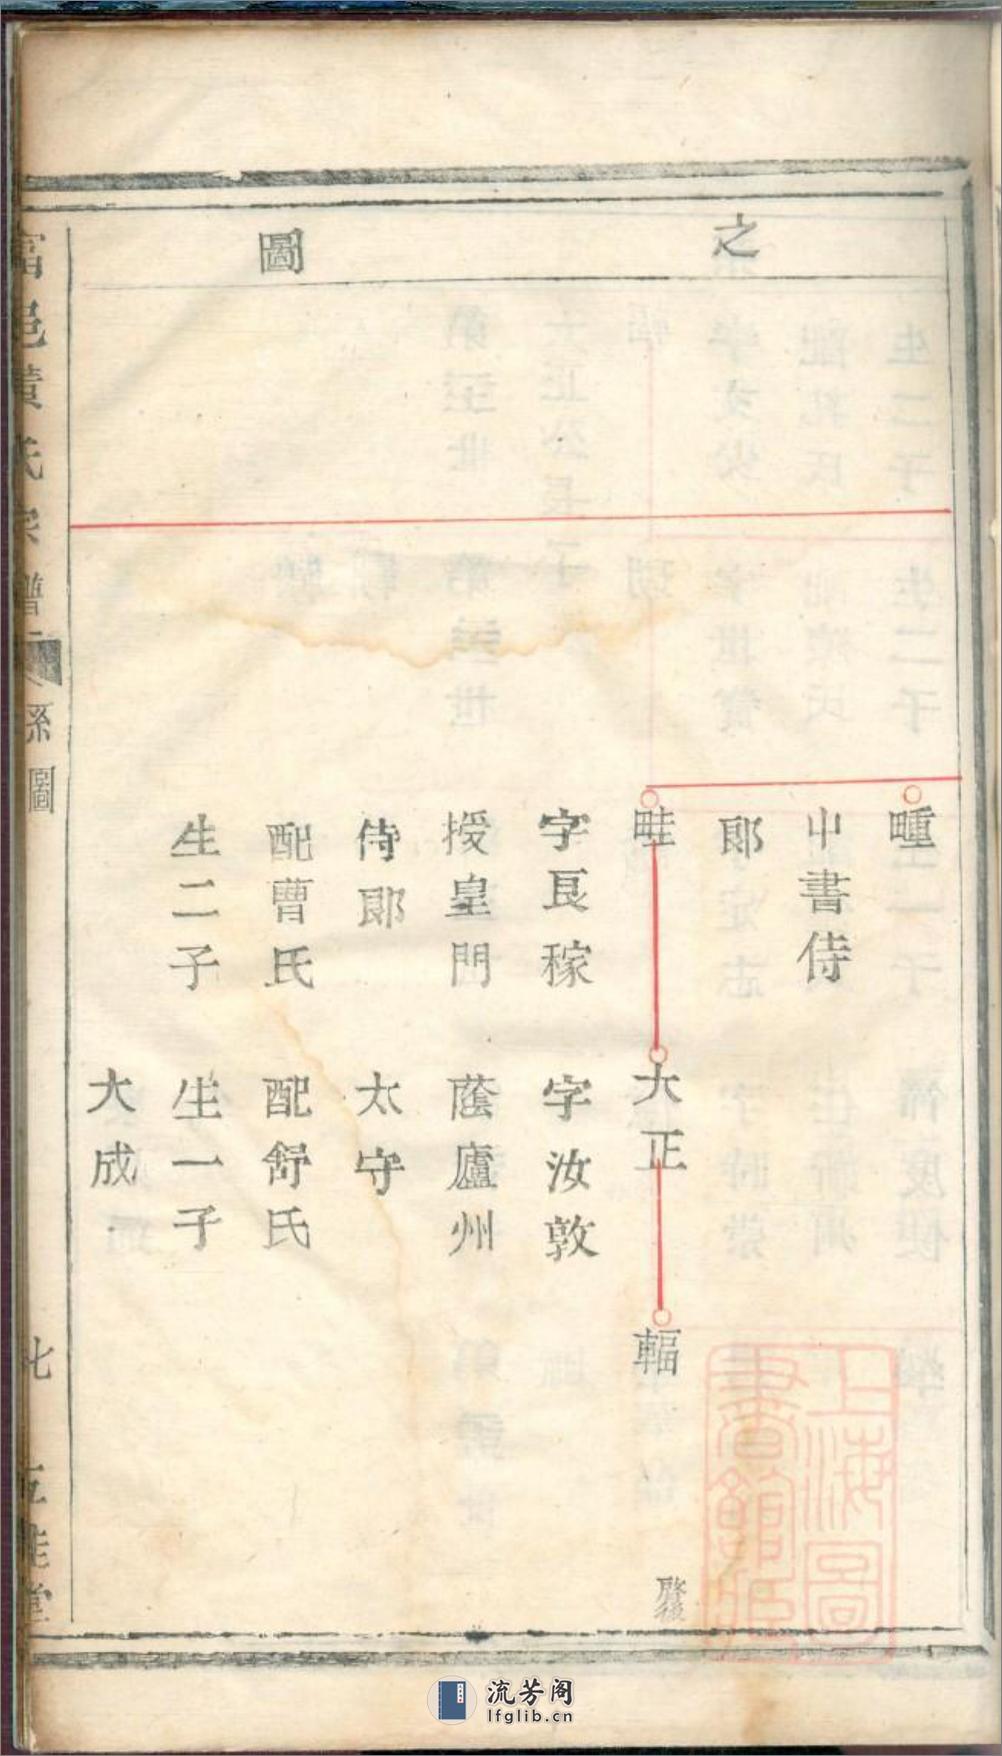 之
圖
畽
中書侍
郎
畦
字長稼
授皇門
侍郎
配曹氏
生二子
大正
字汝敦
蔭廬州
太守
配舒氏
生一子
大成
輻
啓後
富邑黃氏宗譜
系圖
七
五桂堂
上海圖
書館藏
流芳阁
lfglib.cn